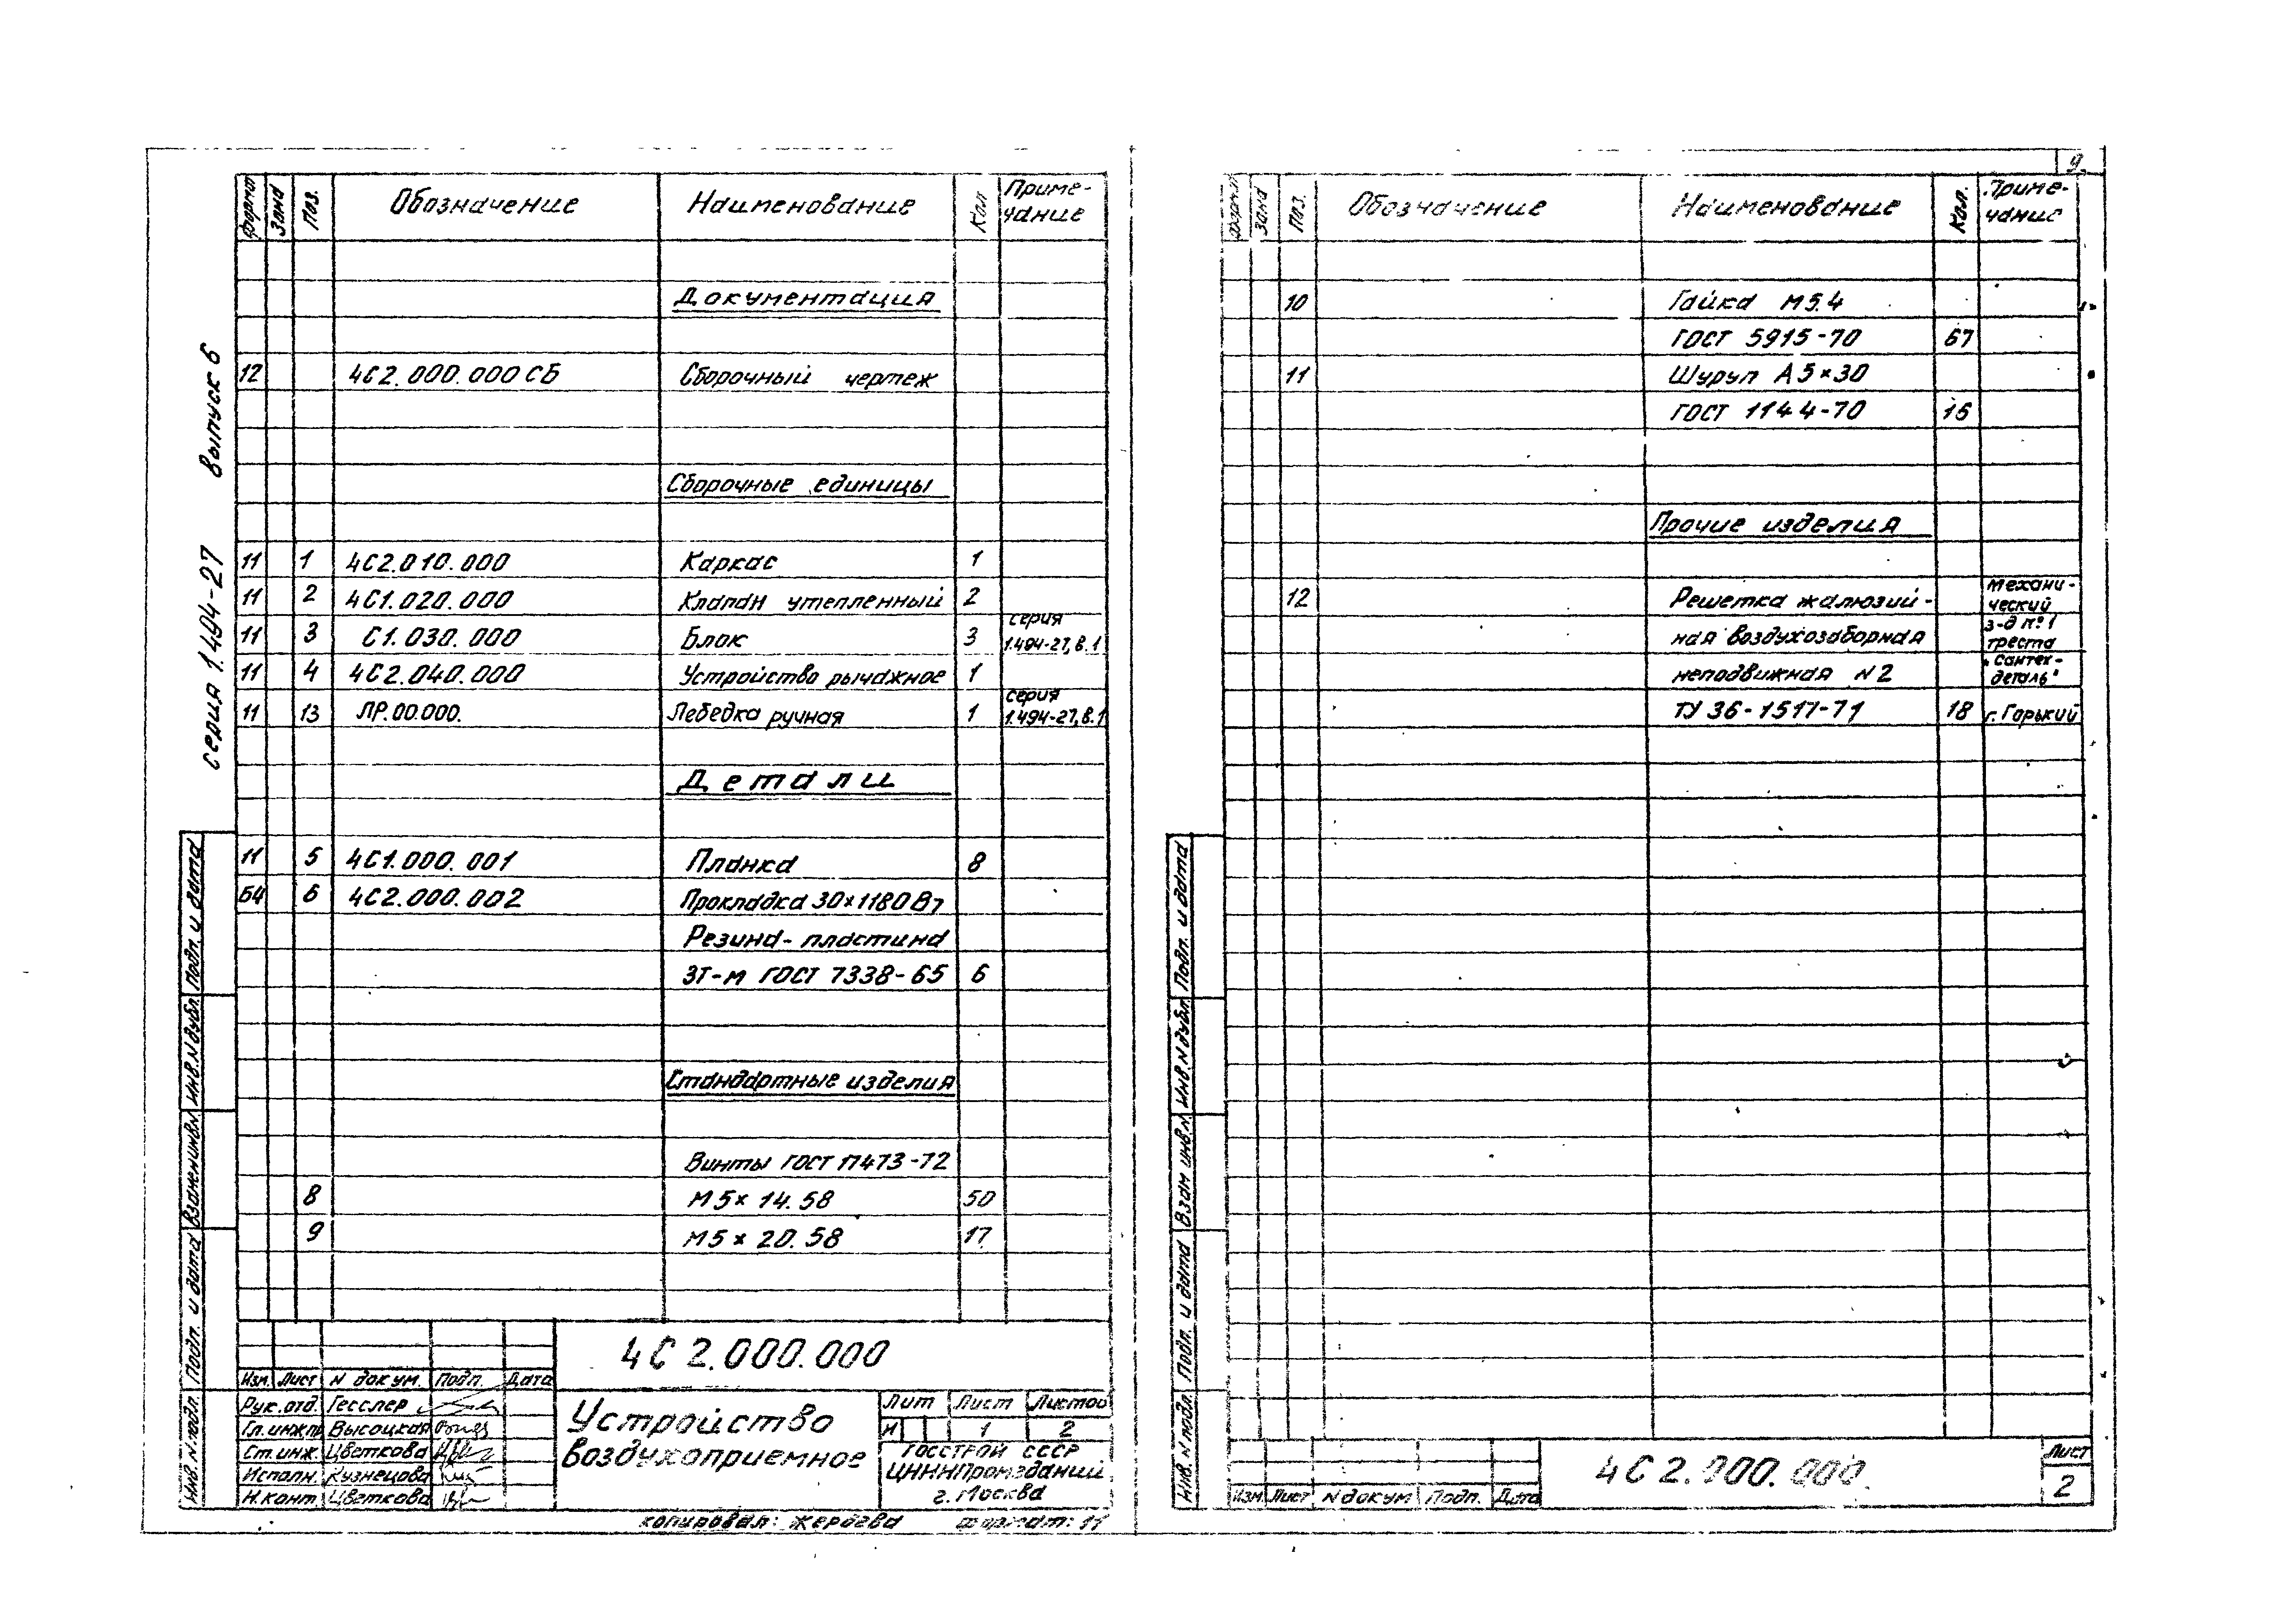 серия 1.494-27 выпуск 6
Формат Зона Поз. Обозначение Наименование Кол Приме-
чание
Документация
12 4С2.000.000СБ Сборочный чертеж
Сборочные единицы
11 1 4С2.010.000 Каркас 1
11 2 4С1.020.000 Клапан утепленный 2
11 3 С1.030.000 Блок 3 серия
1.494-27, в.1
11 4 4С2.040.000 Устройство рычажное 1
11 13 ЛР.00.000. Лебедка ручная 1 серия
1.494-27, в.1
Детали
11 5 4С1.000.001 Планка 8
БЧ 6 4С2.000.002 Прокладка 30×1180
Резина-пластина
3Т-м ГОСТ 7338-65 6
Стандартные изделия
Винты ГОСТ 17473-72
8 М5×14.58 50
9 М5×20.58 17
Инв.N подл. Подп. и дата Взамен инв.N Инв.N дубл. Подп. и дата
4С2.000.000
Изм. Лист N докум. Подп. Дата
Рук.отд. Гесслер
Гл.инж.пр Высоцкая
Ст.инж. Цветкова
Исполн. Кузнецова
Н.конт. Цветкова
Устройство
воздухоприемное
Лит Лист Листов
И 1 2
ГОССТРОЙ СССР
ЦНИИПромзданий
г. Москва
копировал: Жердева формат: 11
9
Формат Зона Поз. Обозначение Наименование Кол. Приме-
чание
10 Гайка М5.4
ГОСТ 5915-70 67
11 Шуруп А5×30
ГОСТ 1144-70 16
Прочие изделия
12 Решетка жалюзий-
ная воздухозаборная
неподвижная N2
ТУ 36-1517-71 18
Механи-
ческий
з-д №1
треста
"Сантех-
деталь"
г. Горький
Инв.N подл. Подп. и дата Взам инв.N Инв.N дубл. Подп. и дата
Изм Лист N докум Подп. Дата
4С2.000.000
Лист
2